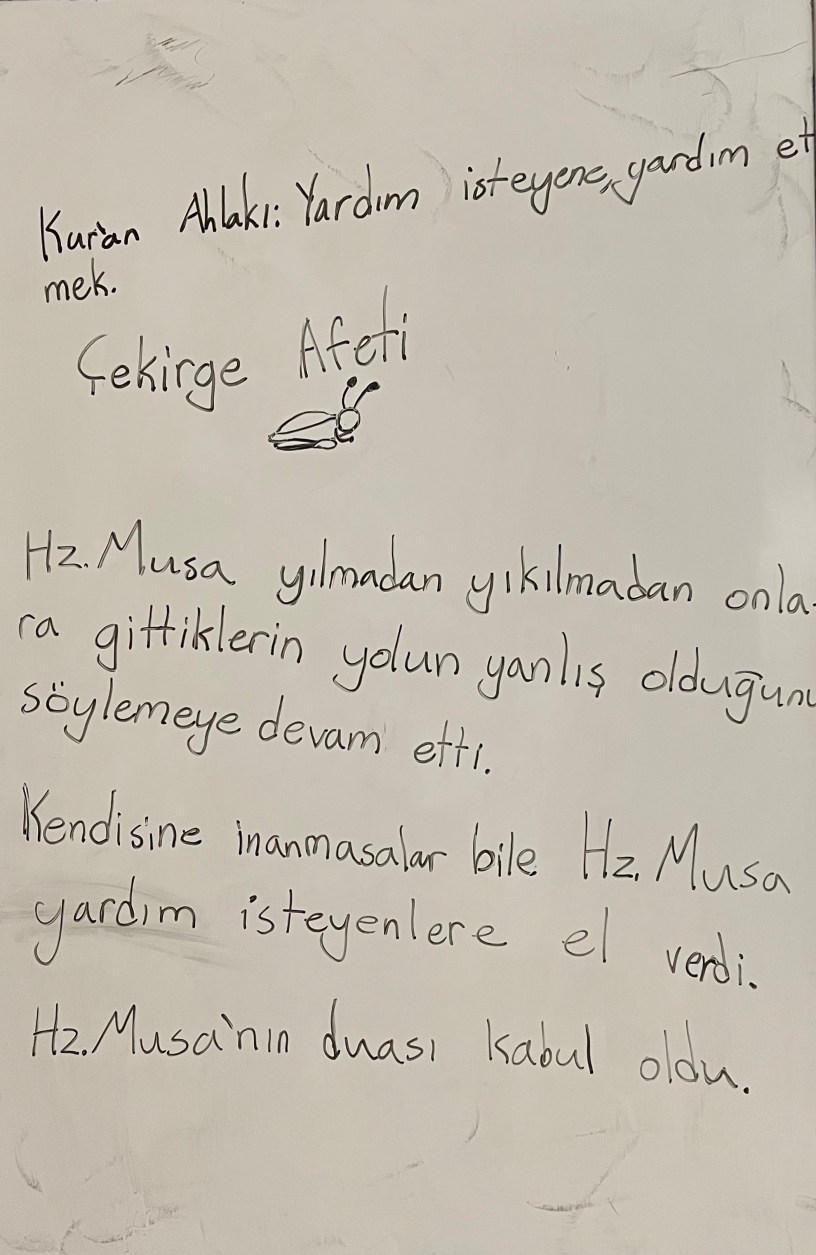 Kur'an Ahlakı: Yardım isteyene, yardım et
mek.
Çekirge Afeti
Hz. Musa yılmadan yıkılmadan onla-
ra gittiklerin yolun yanlış olduğunu
söylemeye devam etti.
Kendisine inanmasalar bile Hz. Musa
yardım isteyenlere el verdi.
Hz. Musa'nın duası kabul oldu.